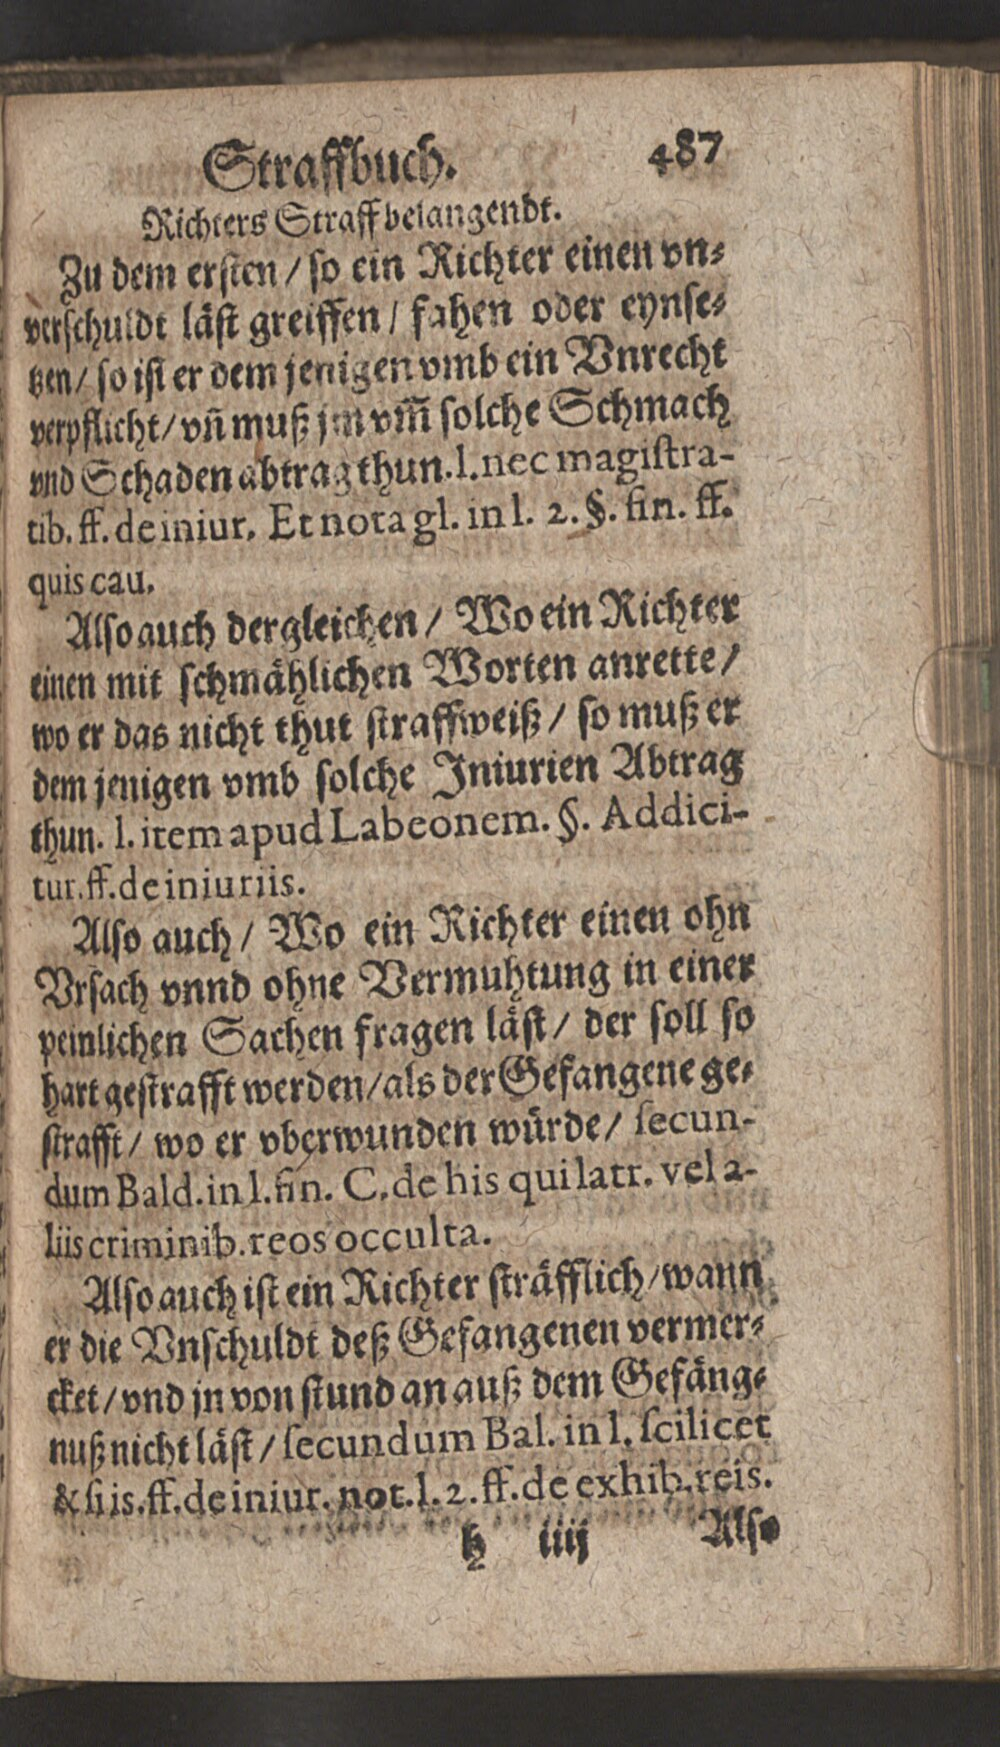 Straffbuch. 487
Richters Straff belangendt.
Zu dem ersten / so ein Richter einen vn⸗
verschuldt läst greiffen / fahen oder eynse⸗
tzen / so ist er dem jenigen vmb ein Vnrecht
verpflicht / vñ muß jm vm̃ solche Schmach
vnd Schaden abtrag thun. l. nec magistra-
tib. ff. de iniur. Et nota gl. in l. 2. §. fin. ff.
quis cau.
Also auch dergleichen / Wo ein Richter
einen mit schmählichen Worten anrette /
wo er das nicht thut straffweiß / so muß er
dem jenigen vmb solche Iniurien Abtrag
thun. l. item apud Labeonem. §. Addici-
tur. ff. de iniuriis.
Also auch / Wo ein Richter einen ohn
Vrsach vnnd ohne Vermuhtung in einer
peinlichen Sachen fragen läst / der soll so
hart gestrafft werden / als der Gefangene ge⸗
strafft / wo er vberwunden würde / secun-
dum Bald. in l. fin. C. de his qui latr. vel a-
liis criminib. reos occulta.
Also auch ist ein Richter sträfflich / wann
er die Vnschuldt deß Gefangenen vermer⸗
cket / vnd jn von stund an auß dem Gefäng⸗
nuß nicht läst / secundum Bal. in l. scilicet
& si is. ff. de iniur. not. l. 2. ff. de exhib. reis.
h iiij Also